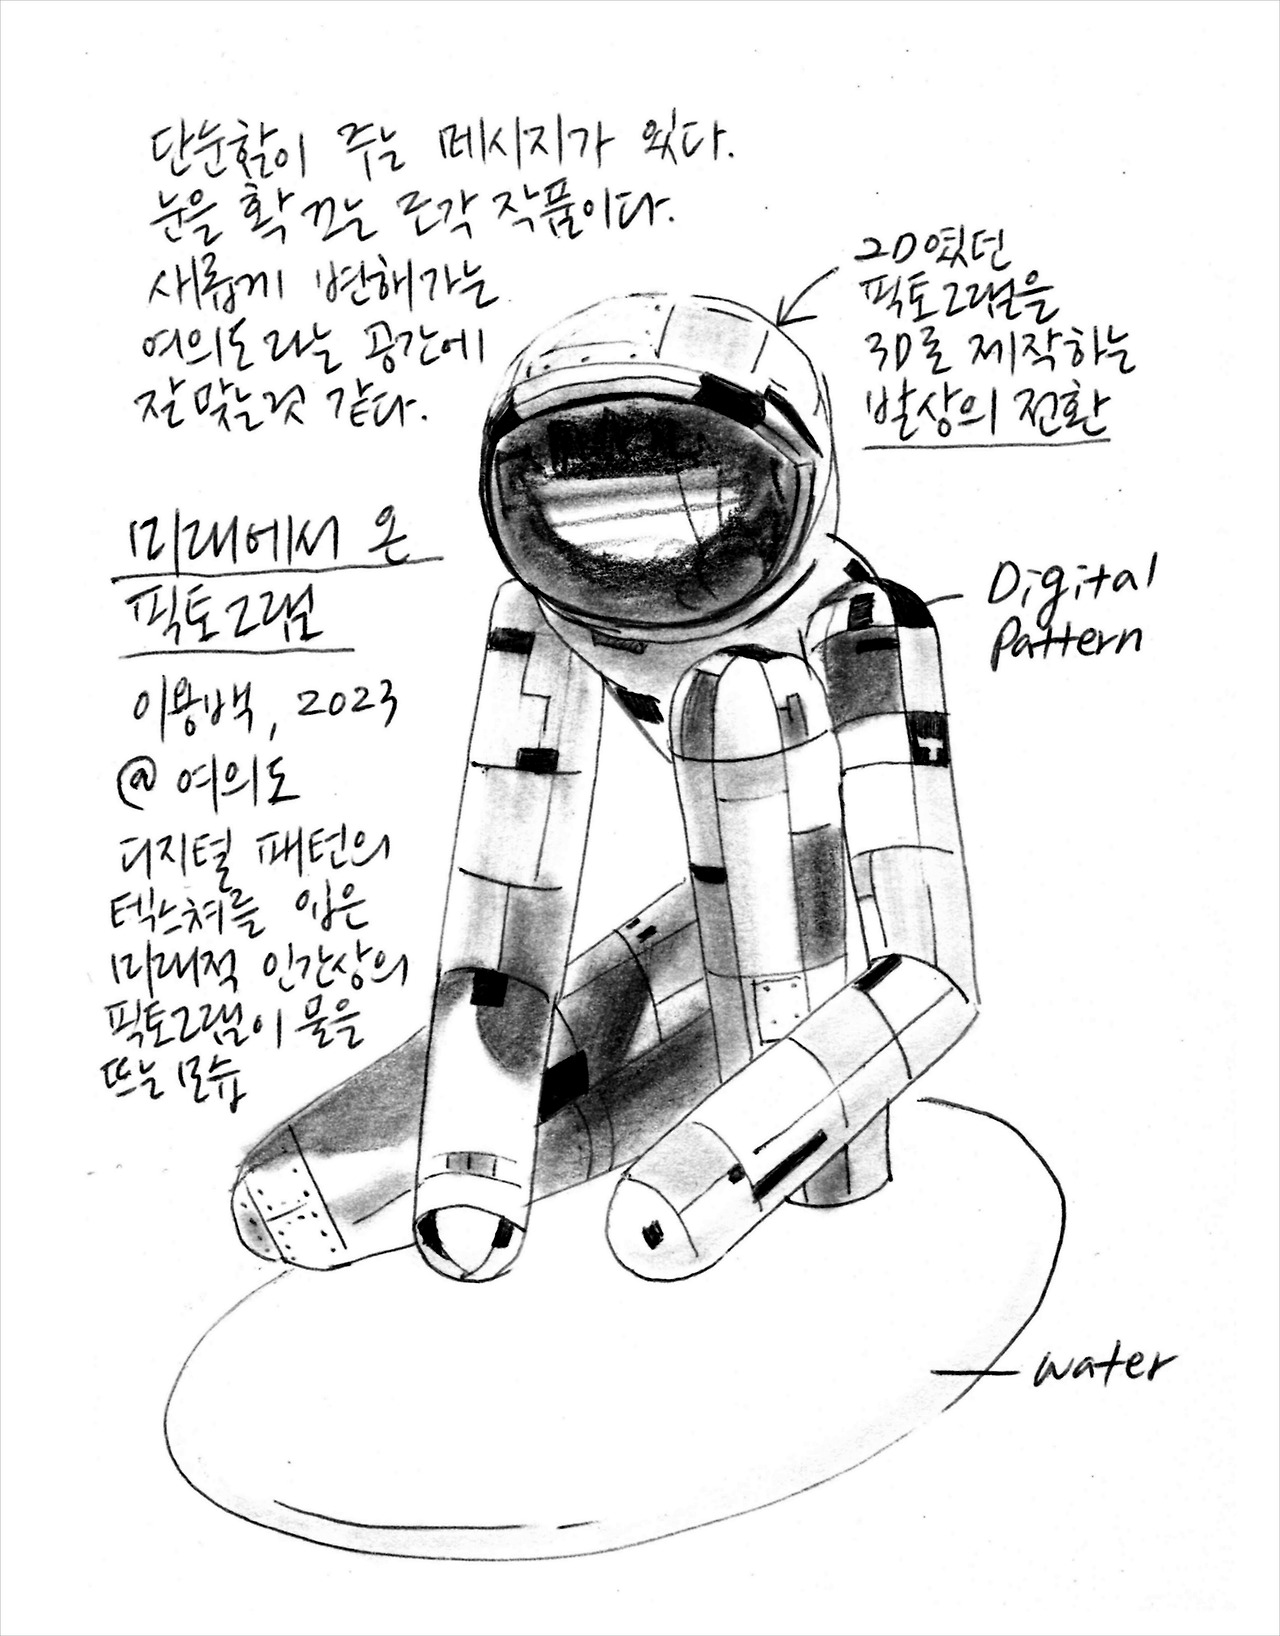 단순함이 주는 메시지가 있다.
눈을 확 끄는 조각 작품이다.
새롭게 변해가는
여의도라는 공간에
잘 맞는것 같다.
2D였던
픽토그램을
3D로 제작하는
발상의 전환
미래에서 온
픽토그램
이용백, 2023
@ 여의도
디지털 패턴의
텍스쳐를 입은
미래적 인간상의
픽토그램이 물을
뜨는 모습
Digital
Pattern
water